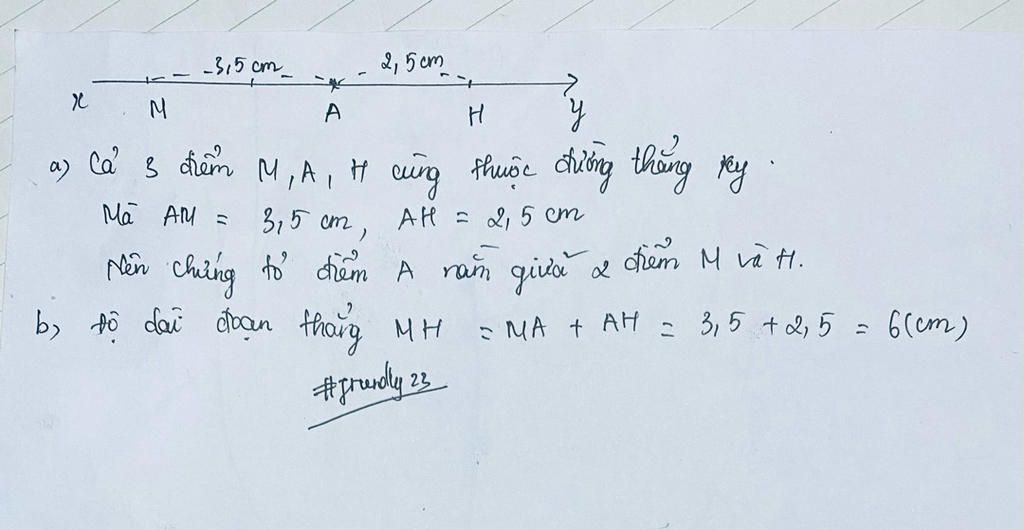 3,5 cm 2,5 cm
x M A H y
a) Cả 3 điểm M, A, H cùng thuộc đường thẳng xy.
Mà AM = 3,5 cm, AH = 2,5 cm
Nên chứng tỏ điểm A nằm giữa 2 điểm M và H.
b) Độ dài đoạn thẳng MH = MA + AH = 3,5 + 2,5 = 6(cm)
#friendly 23